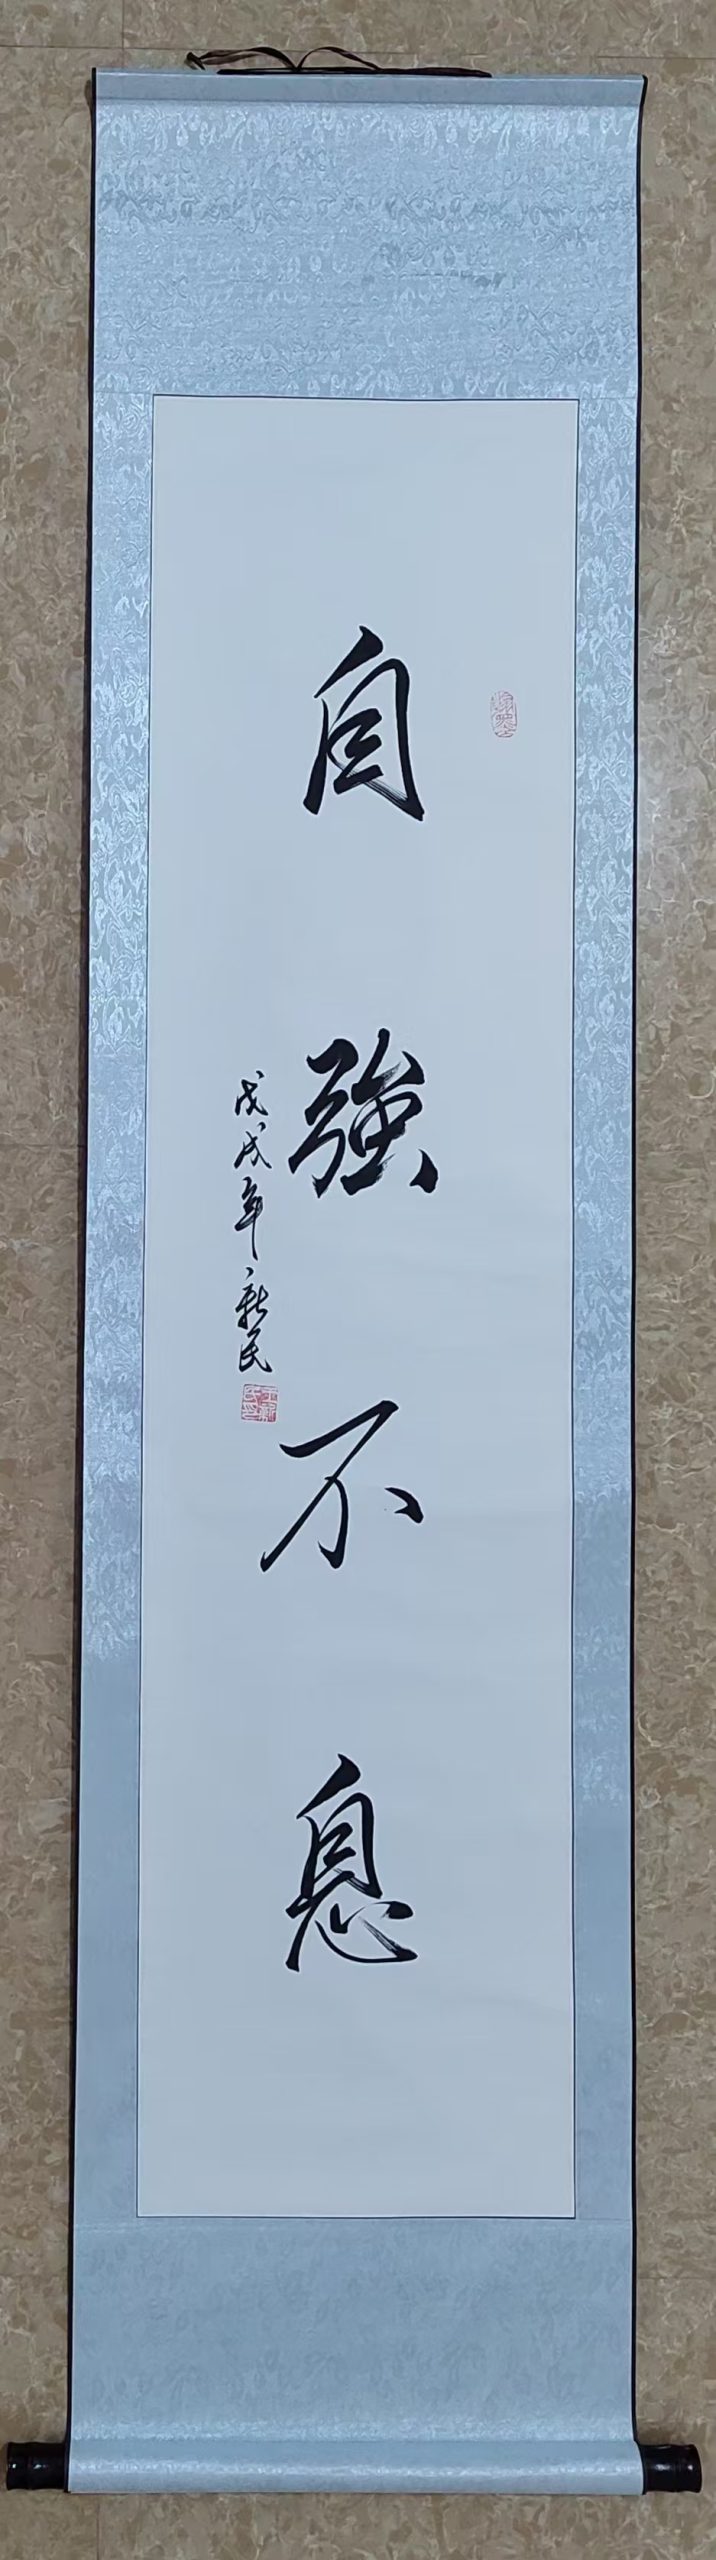 自強不息
戊戌年新民